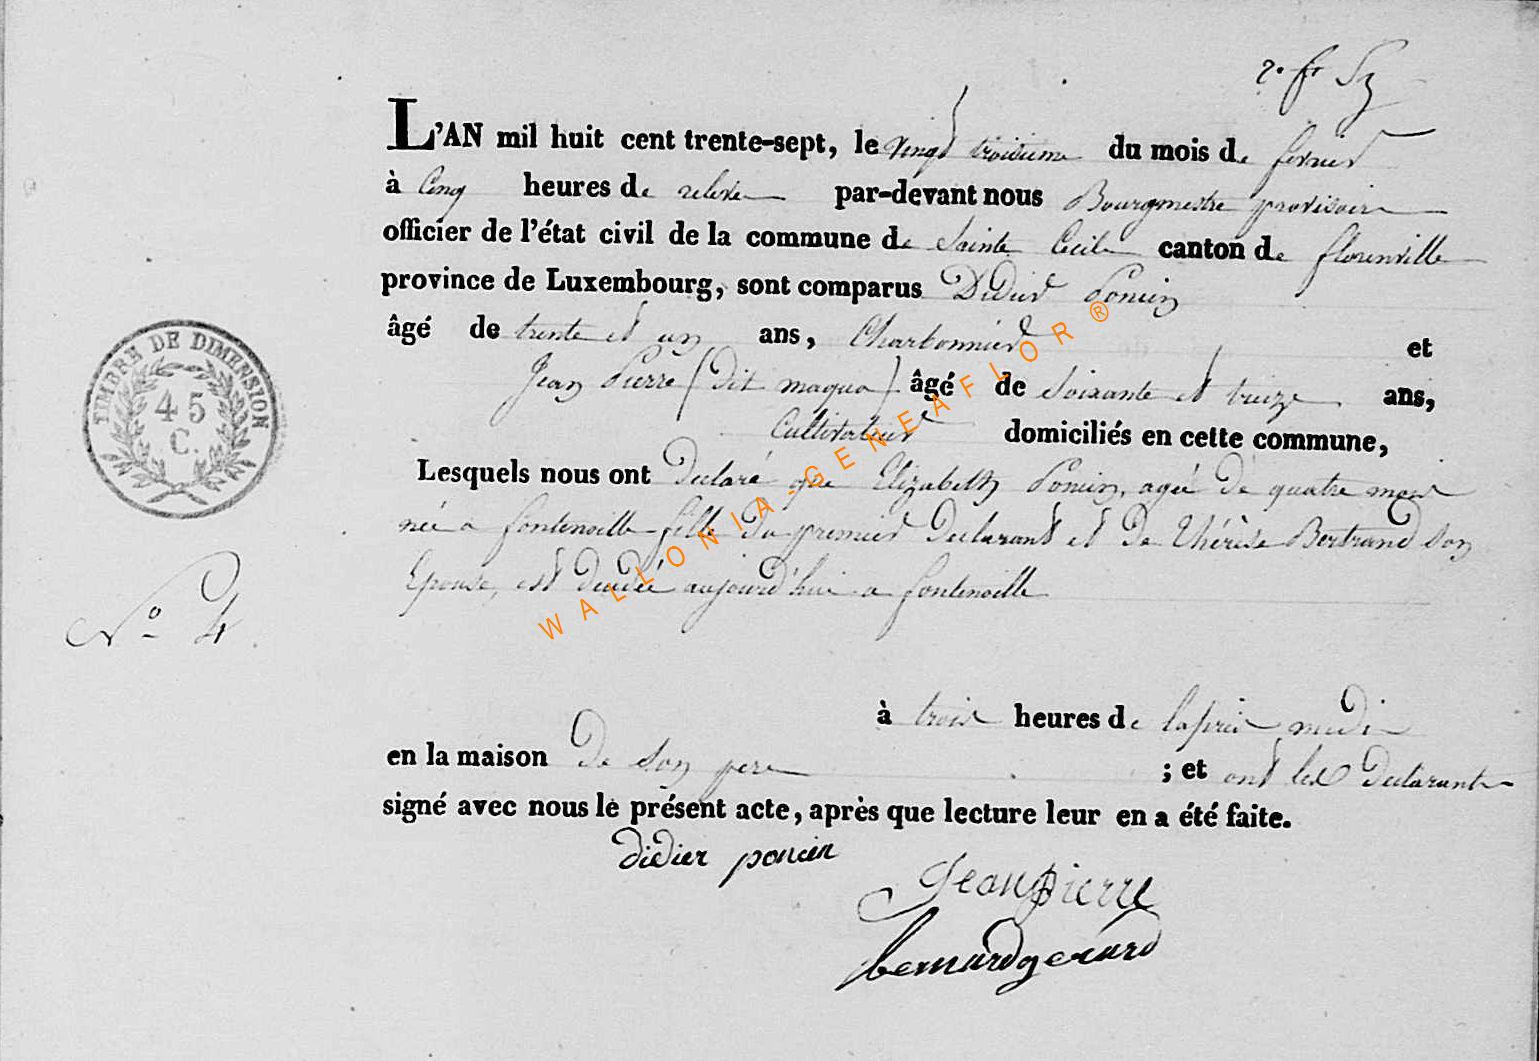 2. fr
L'AN mil huit cent trente-sept, le vingt troisieme du mois de fevrier
à Cinq heures de relevé par-devant nous Bourgmestre provisoir
officier de l'état civil de la commune de Sainte Cecile canton de florenville
province de Luxembourg, sont comparus Didier Poncin
âgé de trente et un ans, Charbonnier et
Jean Pierre (dit maqua) âgé de Soixante et treize ans,
Cultivateur domiciliés en cette commune,
Lesquels nous ont Declaré que Elizabeth Poncin, agée de quatre mois
née a fontenoille fille du premier Declarant et De Thérèse Bertrand son
Epouse, est decedée aujourd'hui a fontenoille
à trois heures de laprès midi
en la maison De son pere ; et ont les Declarants
signé avec nous le présent acte, après que lecture leur en a été faite.
didier poncin
Jean pierre
bernard gerard
TIMBRE DE DIMENSION
45
C.
No 4
WALLONIA-GENEAFLOR ®